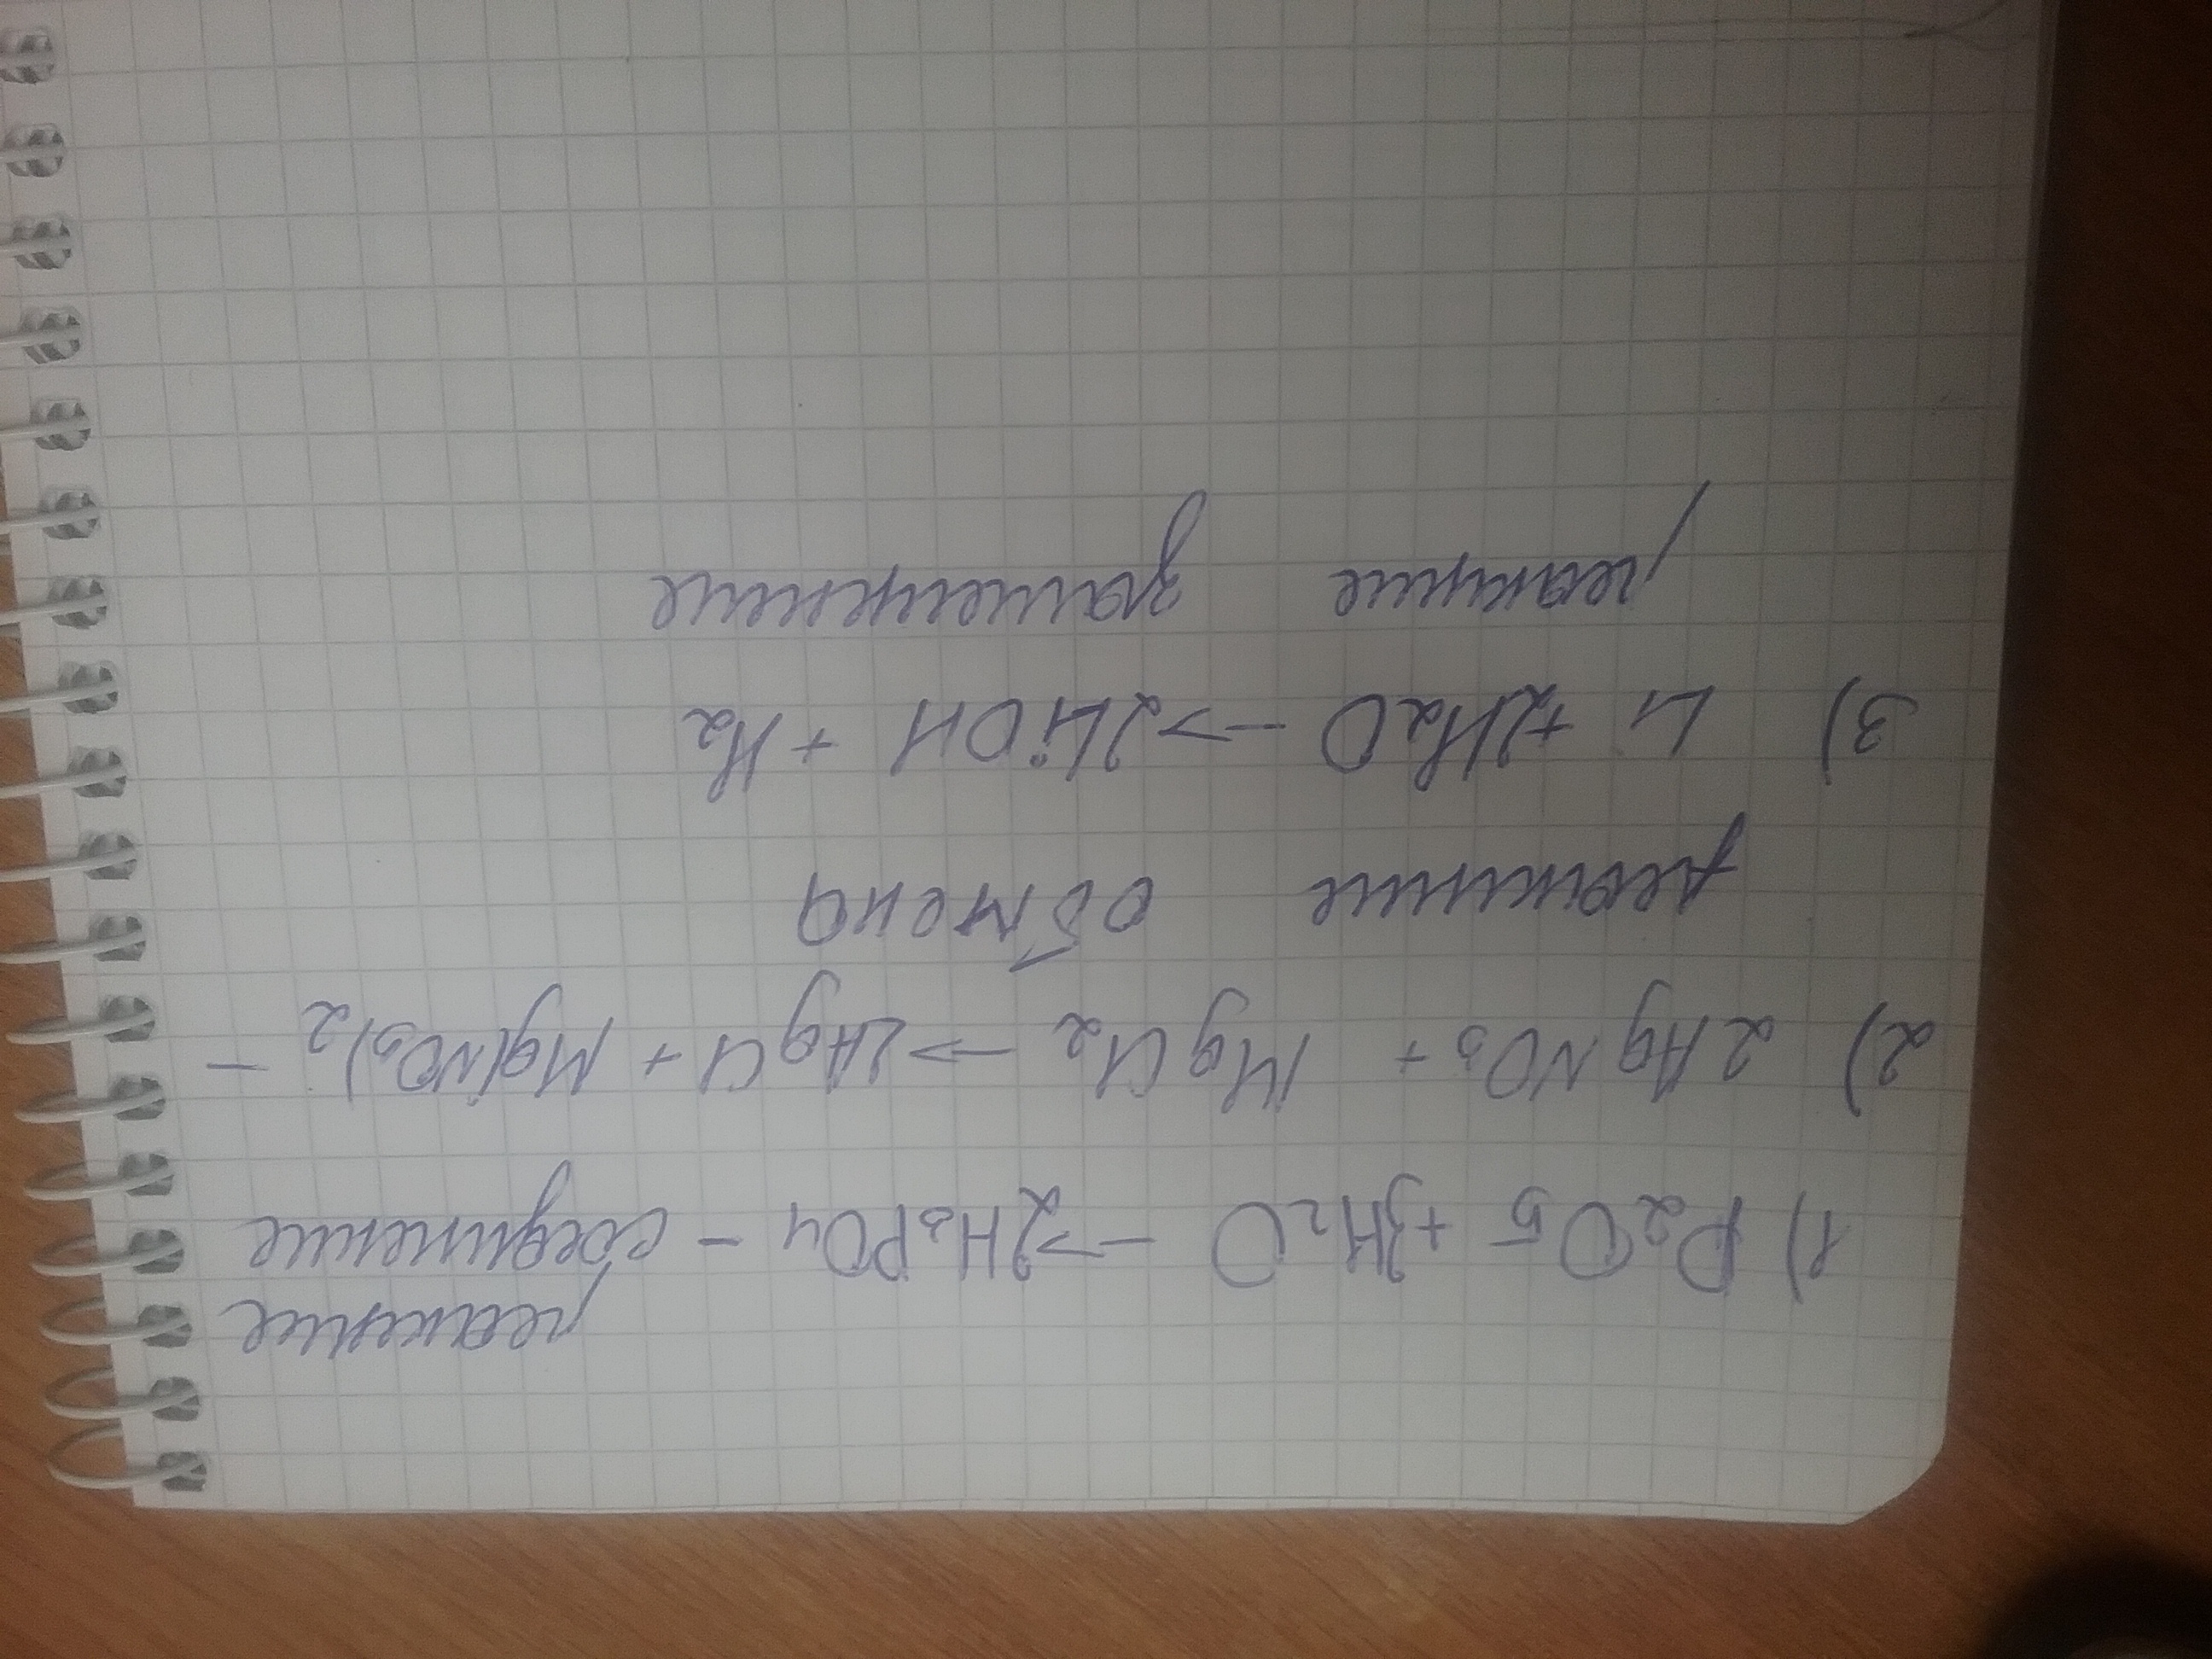 реакцие
1) P₂O₅ + 3H₂O → 2H₃PO₄ - соединение
2) 2AgNO₃ + MgCl₂ → 2AgCl + Mg(NO₃)₂ -
реакцие обмена
3) Li + 2H₂O → 2LiOH + H₂
реакцие замещение